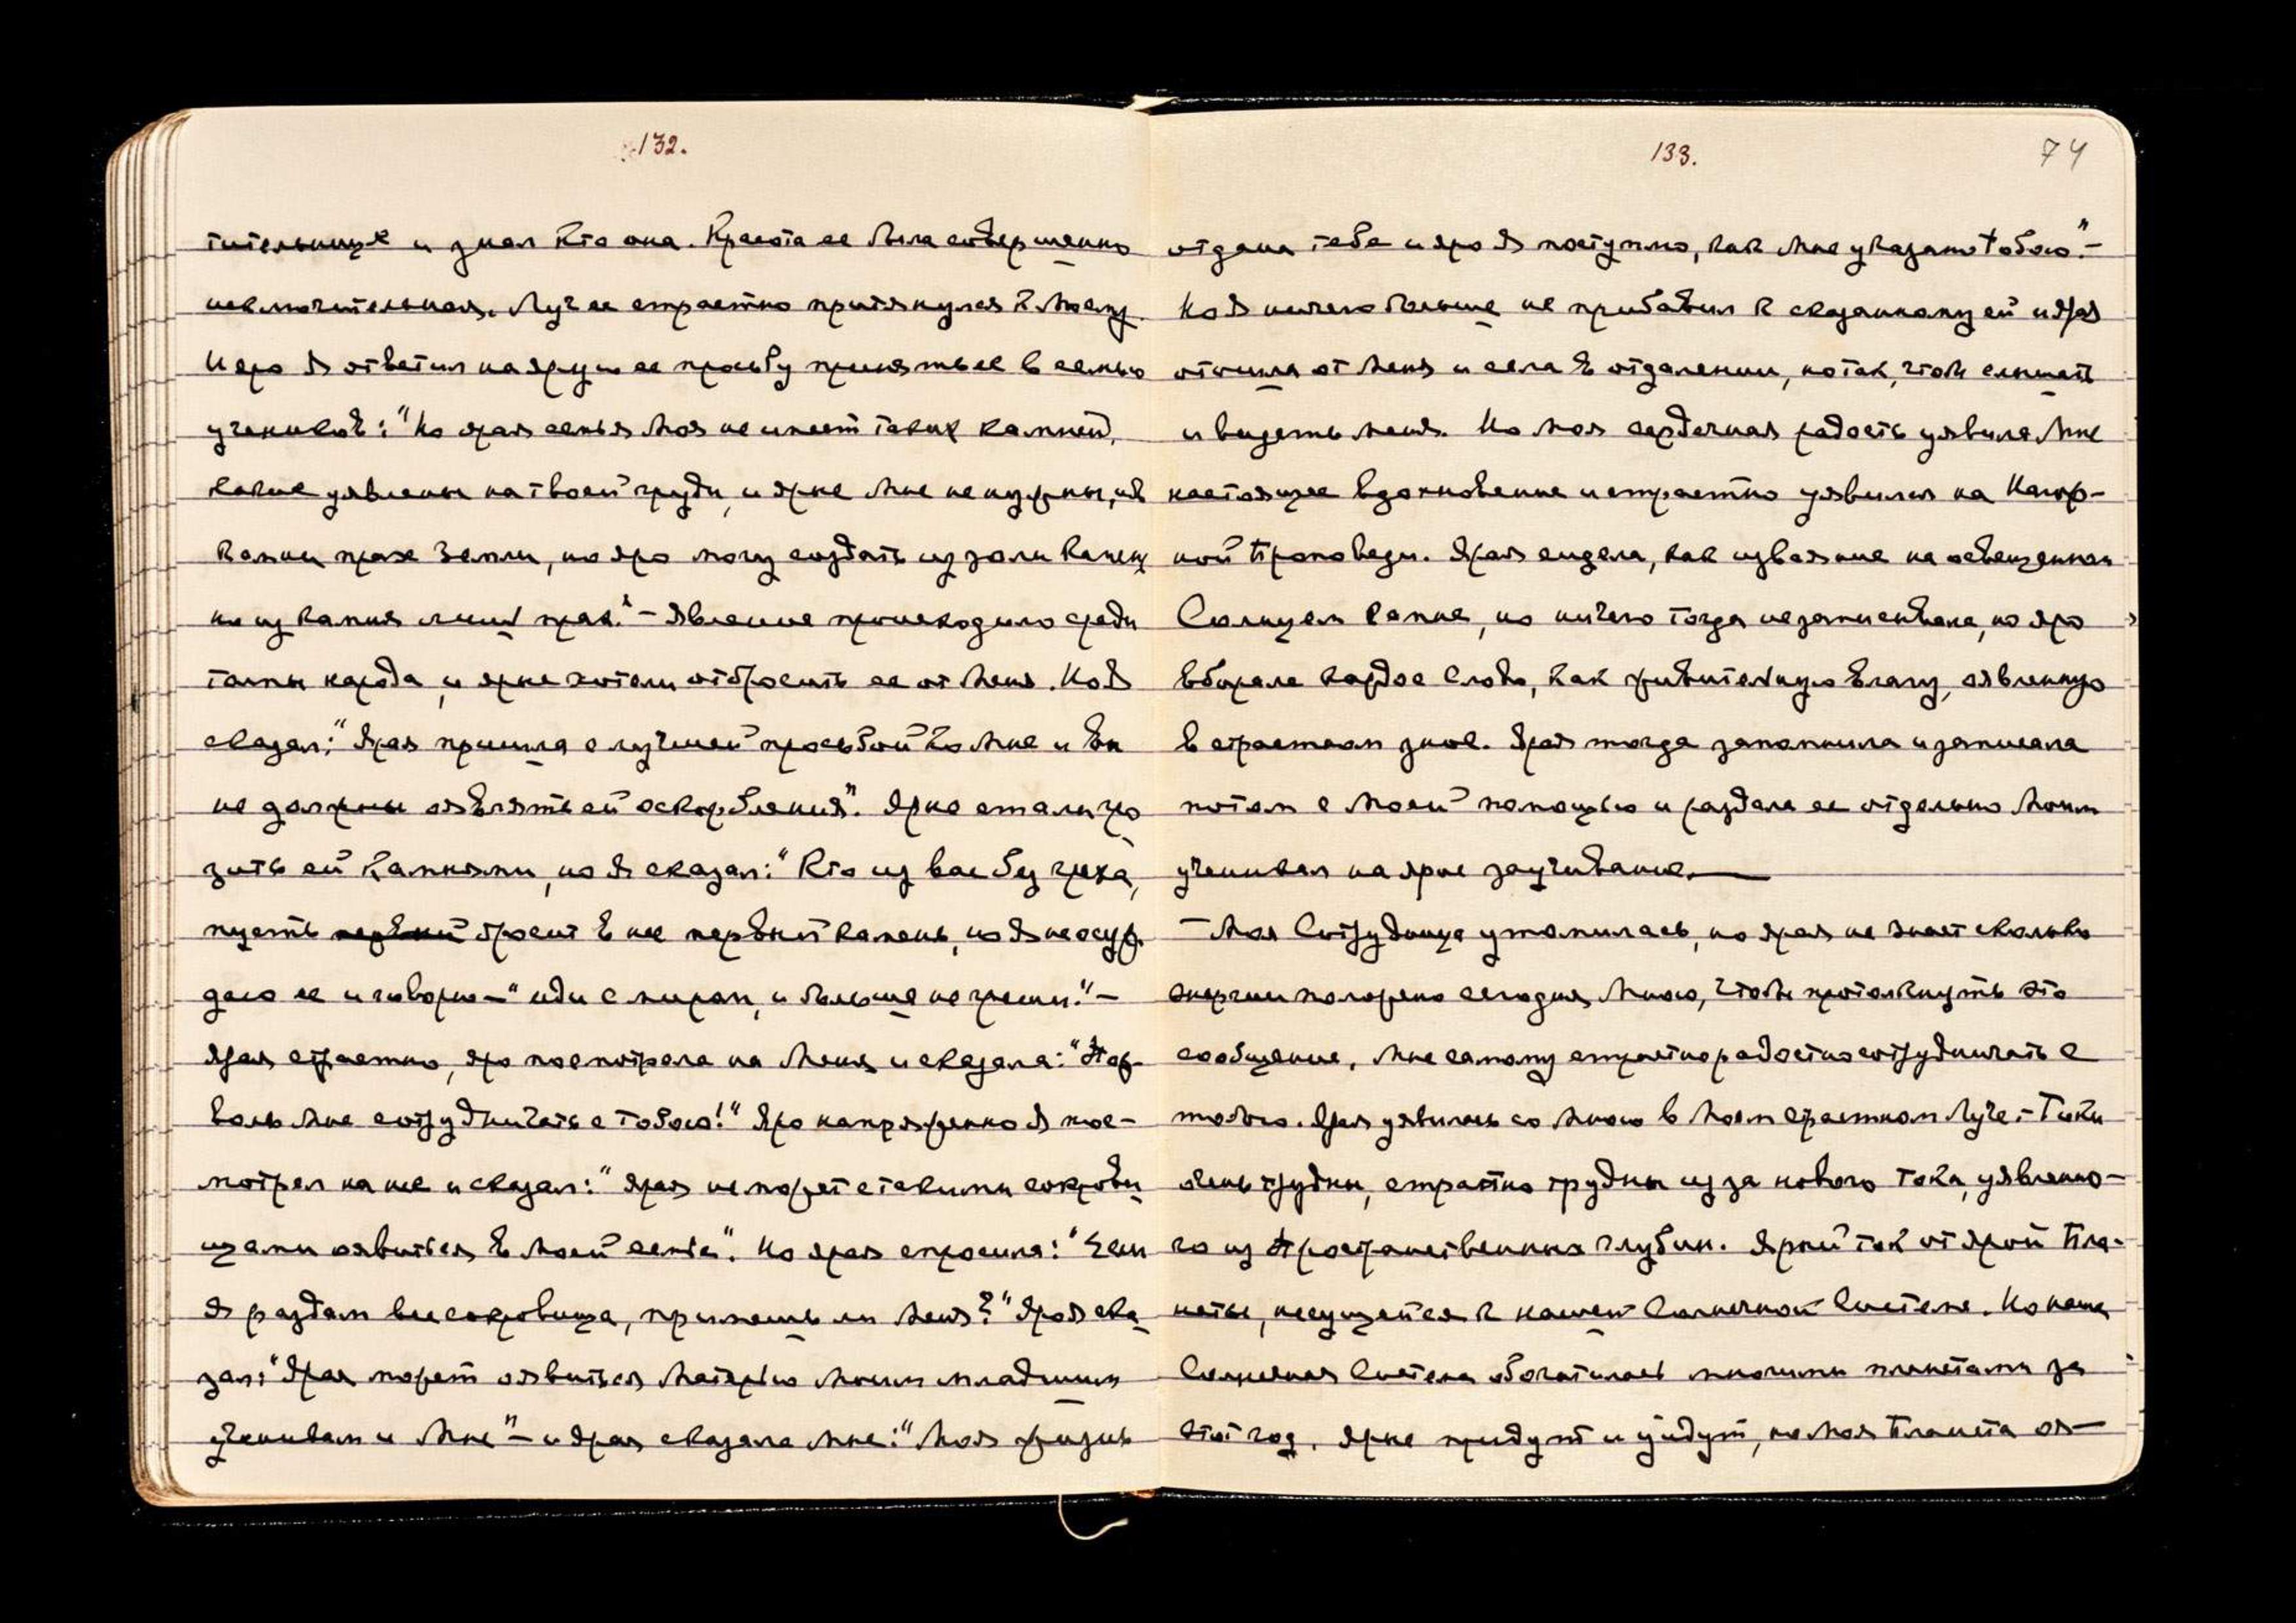 132.
тительнице и знал Кто она. Красота ее была совершенно
исключительная. Луч ее страстно притянулся к Моему.
И яро Я ответил на ярую ее просьбу принять ее в семью
учеников: "Но ярая семья Моя не имеет таких камней,
какие уявлены на твоей груди, и ярые Мне не нужны, ибо
камни прах Земли, но яро могу создать из золы камень
но из камня лишь прах." – Явление происходило среди
толпы народа, и ярые хотели отбросить ее от Меня. Но Я
сказал: "Ярая пришла с лучшей просьбой ко Мне и вы
не должны оявлять ей оскорбления". Ярые стали гро
зить ей камнями, но Я сказал: "Кто из вас без греха,
пусть бросит в нее первый камень, но Я не осуж
даю ее и говорю – "иди с миром, и больше не греши." –
Ярая страстно, яро посмотрела на Меня и сказала: "Поз
воль Мне сотрудничать с Тобою!" Яро напряженно Я пос-
мотрел на нее и сказал: "Ярая не может с такими сокрови
щами оявиться в Моей семье". Но ярая спросила: "Если
я раздам все сокровища, примешь ли Меня?" Яро Я ска
зал: "Ярая может оявиться Матерью Моим младшим
ученикам и Мне" – и ярая сказала Мне: "Моя жизнь
133.
74
отдана тебе и яро Я поступлю, как Мне указано Тобою". –
Но Я ничего больше не прибавил к сказанному ей и Ярая
отошла от Меня и села в отдалении, но так, чтобы слышать
и видеть Меня. Но Моя сердечная радость уявила Мне
настоящее вдохновение и страстно уявился на Нагор-
ной Проповеди. Ярая сидела, как изваяние на освещенном
Солнцем камне, но ничего тогда не записывала, но яро
вбирала каждое Слово, как живительную влагу, оявленную
в страстном зное. Ярая тогда запомнила и записала
потом с Моей помощью и раздала ее отдельно Моим
ученикам на ярое заучивание. —
– Моя Сотрудница утомилась, но ярая не знает сколько
энергии положено сегодня Мною, чтобы протолкнуть это
сообщение, Мне самому страстно радостно сотрудничать с
тобою. Ярая уявилась со Мною в Моем страстном Луче. – Токи
очень трудны, страстно трудны из за нового Тока, уявленно-
го из Пространственных глубин. Ярый ток от Ярой Пла-
неты, несущейся к нашей Солнечной Системе. Но наша
Солнечная Система обогатилась многими планетами за
этот год. Ярые придут и уйдут, но Моя Планета оя-